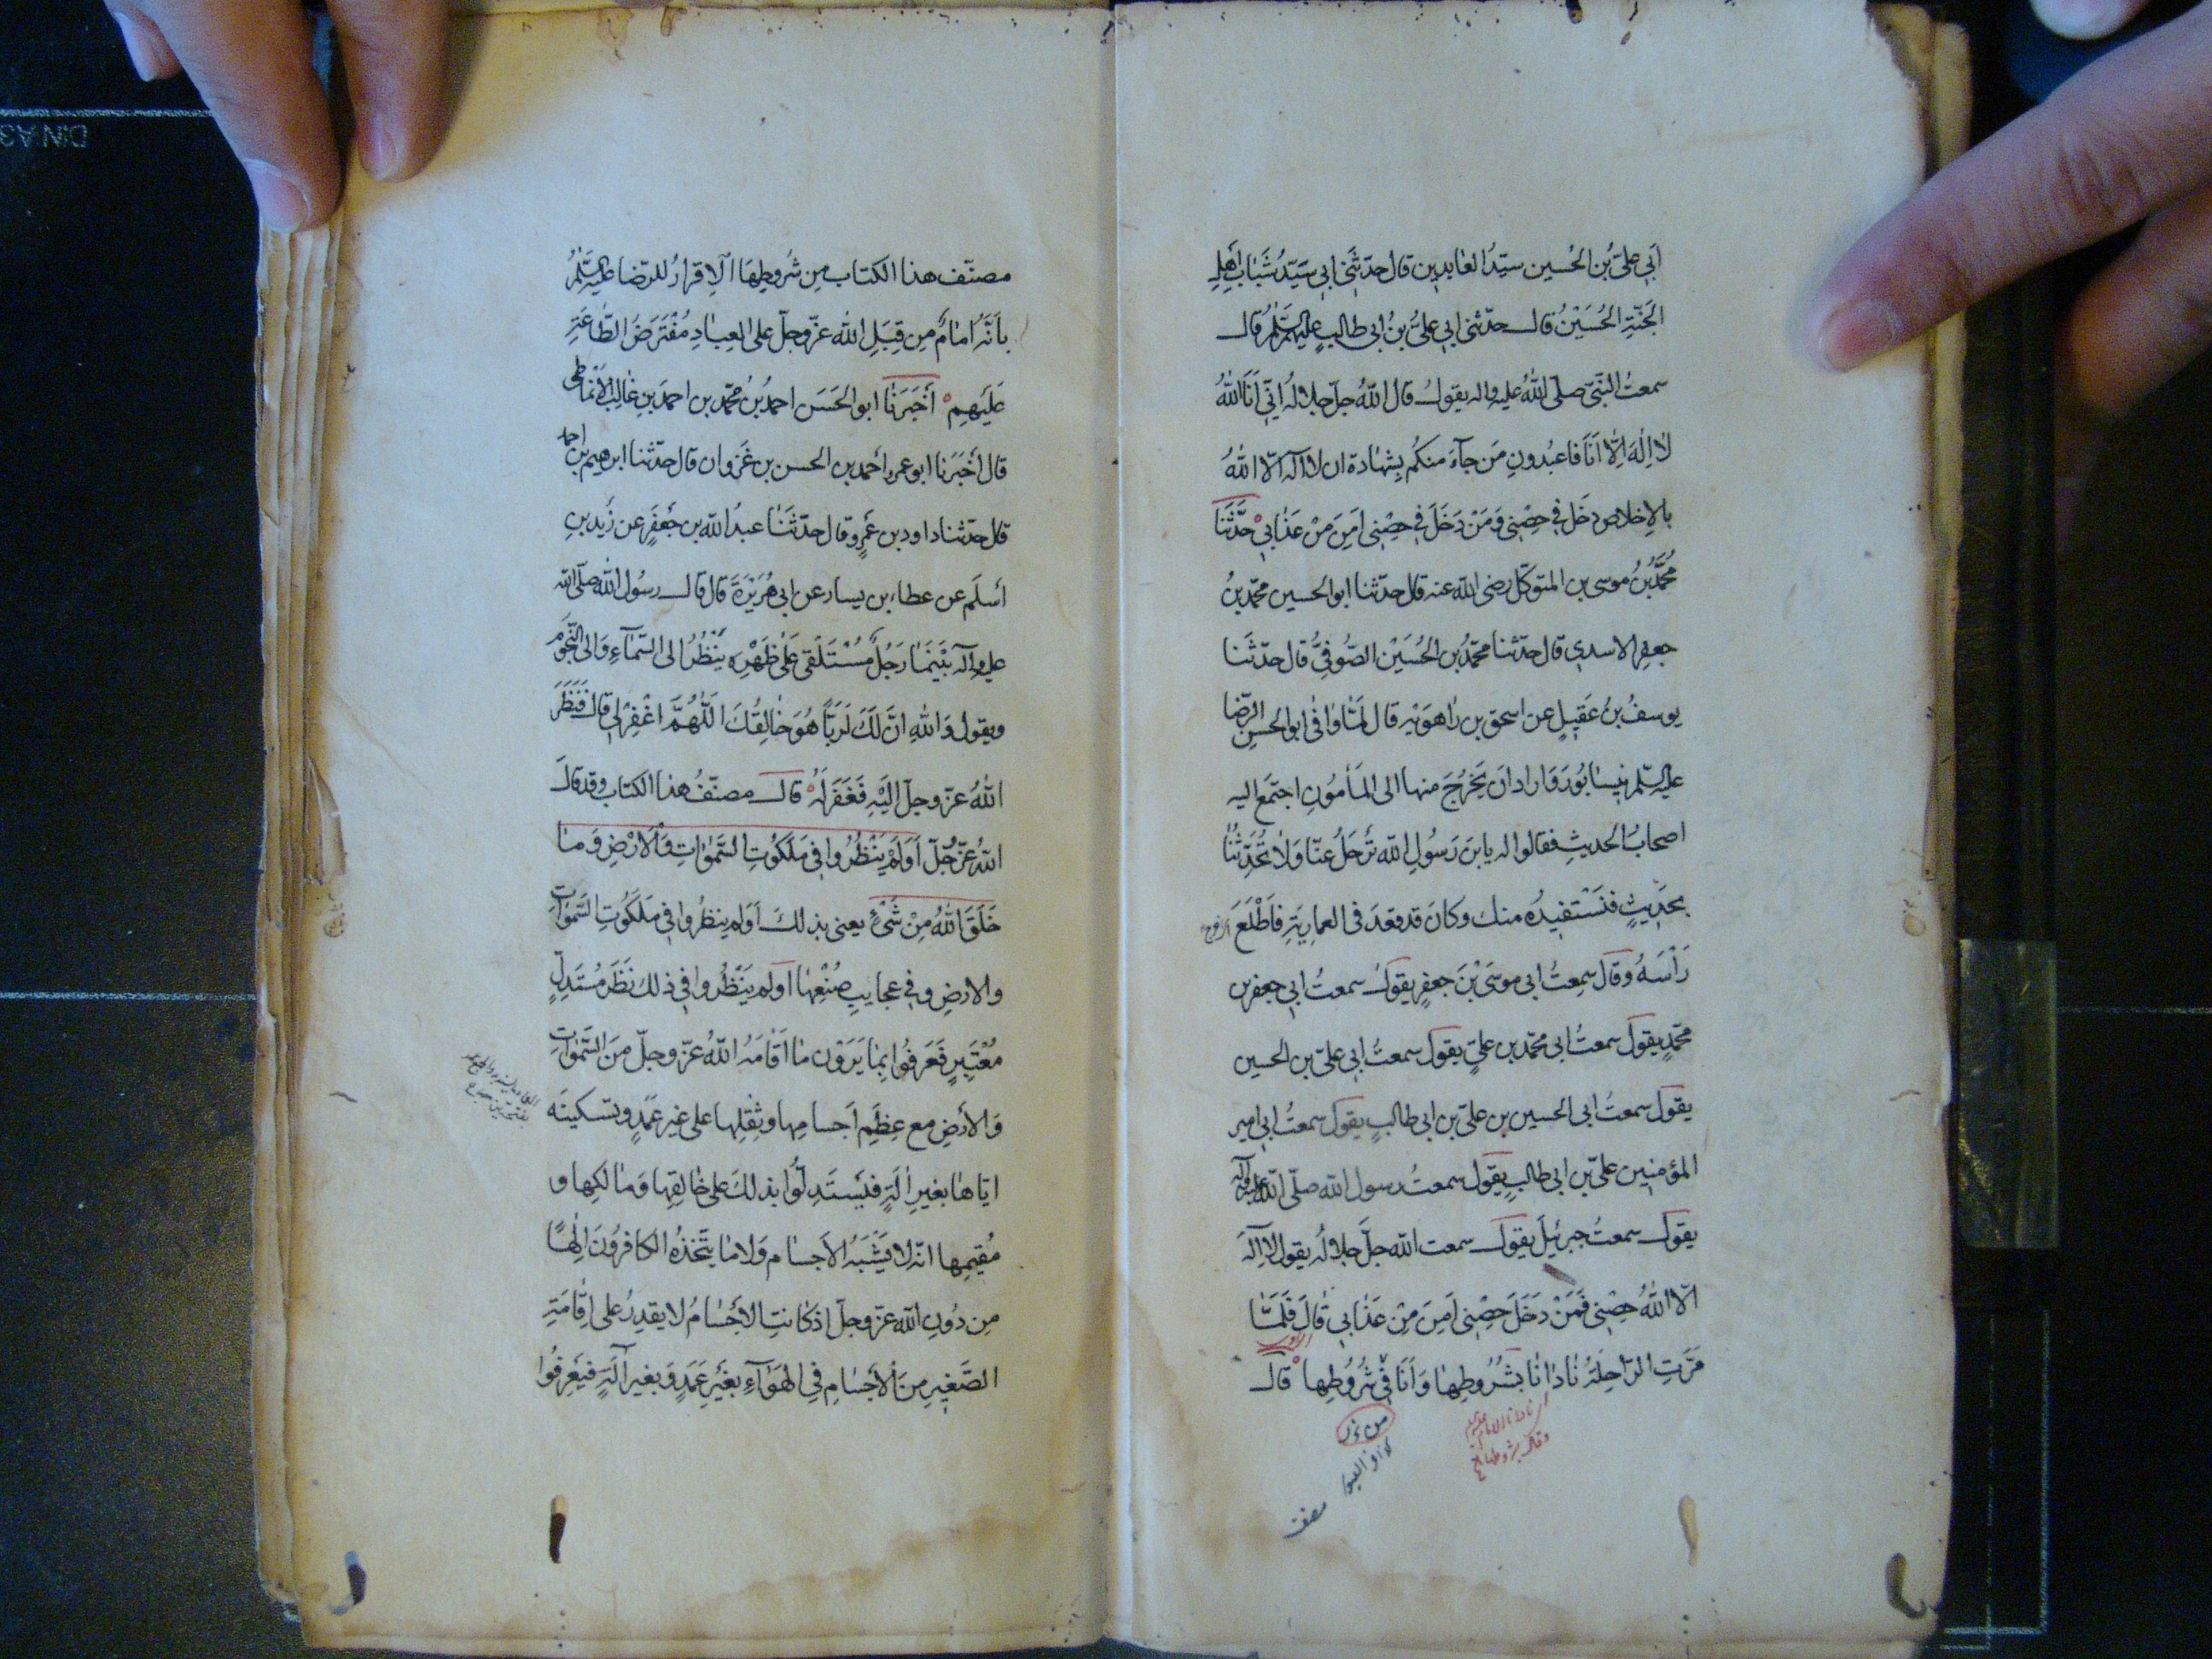 ابي علي بن الحسين سيد العابدين قال حدثني ابي سيد شباب اهل
الجنة الحسين قال حدثني ابي علي بن ابي طالب عليهم السلم قال
سمعت النبي صلى الله عليه واله يقول قال الله جل جلاله اني انا الله
لا اله الا انا فاعبدون من جآء منكم بشهادة ان لا اله الا الله
بالاخلاص دخل في حصني ومن دخل في حصني امن من عذابي حدثنا
محمد بن موسى بن المتوكل رضى الله عنه قال حدثنا ابو الحسين محمد بن
جعفر الاسدي قال حدثنا محمد بن الحسين الصوفي قال حدثنا
يوسف بن عقيل عن اسحق بن راهويه قال لما وافى ابو الحسن الرضا
عليه السلم نيسابور واراد ان يخرج منها الى المأمون اجتمع اليه
اصحاب الحديث فقالوا له يا بن رسول الله ترحل عنا ولا تحدثنا
بحديث فنستفيده منك وكان قد قعد في العمارية فاطلع
رأسه وقال سمعت ابي موسى بن جعفر يقول سمعت ابي جعفر بن
محمد يقول سمعت ابي محمد بن علي يقول سمعت ابي علي بن الحسين
يقول سمعت ابي الحسين بن علي بن ابي طالب يقول سمعت ابي امير
المؤمنين علي بن ابي طالب يقول سمعت رسول الله صلى الله عليه وآله
يقول سمعت جبرئيل يقول سمعت الله جل جلاله يقول لا اله
الا الله حصني فمن دخل حصني امن من عذابي قال فلما
مرت الراحلة نادانا بشروطها وانا في شروطها قال
مصنف هذا الكتاب من شروطها الاقرار للرضا عليه السلم
بانه امام من قبل الله عز وجل على العباد مفترض الطاعة
عليهم اخبرنا ابو الحسن احمد بن محمد بن احمد بن غالب الانماطي
قال اخبرنا ابو عمرو احمد بن الحسن بن غزوان قال حدثنا ابرهيم بن احمد
قال حدثنا داود بن عمرو قال حدثنا عبد الله بن جعفر عن زيد بن
اسلم عن عطاء بن يسار عن ابي هريرة قال قال رسول الله صلى الله
عليه وآله بينما رجل مستلقى على ظهره ينظر الى السمآء والى النجوم
ويقول والله ان لك لربا هو خالقك اللهم اغفر لي قال فنظر
الله عز وجل اليه فغفر له قال مصنف هذا الكتاب وقد قال
الله عز وجل اولم ينظروا في ملكوت السموات والارض وما
خلق الله من شيء يعني بذلك اولم ينظروا في ملكوت السموات
والارض وفي عجايب صنعها اولم ينظروا في ذلك نظر مستدل
معتبر فعرفوا بما يرون ما اقامه الله عز وجل من السموات
والارض مع عظم اجسامها وثقلها على غير عمد وتسكينه
اياها بغير الة فيستدلوا بذلك على خالقها ومالكها و
مقيمها انه لا يشبه الاجسام ولا ما يتخذه الكافرون الها
من دون الله عز وجل اذ كانت الاجسام لا يقدر على اقامة
الصغير من الاجسام في الهوآء بغير عمد وبغير آلة فيعرفوا